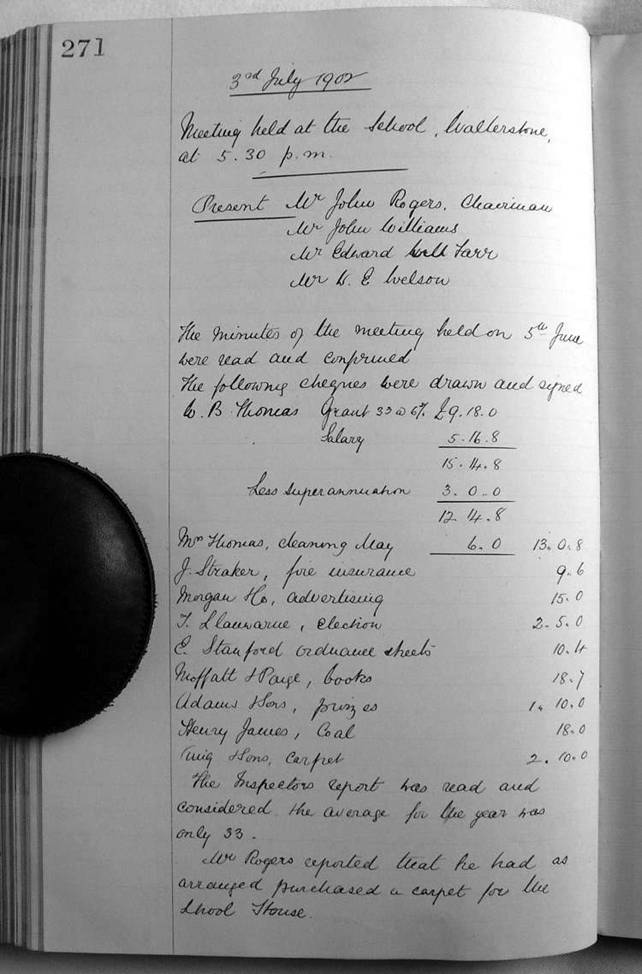 271
3rd July 1902
Meeting held at the School, Walterstone,
at 5.30 p.m.
Present Mr John Rogers. Chairman
Mr John Williams
Mr Edward Farr
Mr W. E Welson
The minutes of the meeting held on 5th June
were read and confirmed
The following cheques were drawn and signed
W. B. Thomas Grant 33 @ 6/- £9.18.0
Salary 5.16.8
15.14.8
Less superannuation 3.0.0
12.14.8
Mrs Thomas, cleaning May 6.0 13.0.8
J. Straker, fire insurance 9.6
Morgan &Co, advertising 15.0
T. Llanwarne, election 2.5.0
E. Stanford ordnance sheets 10.4
Moffatt & Paige, books 18.7
Adams &Sons, prizes 1.10.0
Henry James, Coal 18.0
&Sons, carpet 2.10.0
The Inspectors report was read and
considered. The average for the year was
only 33.
Mr Rogers reported that he had as
arranged purchased a carpet for the
School House.